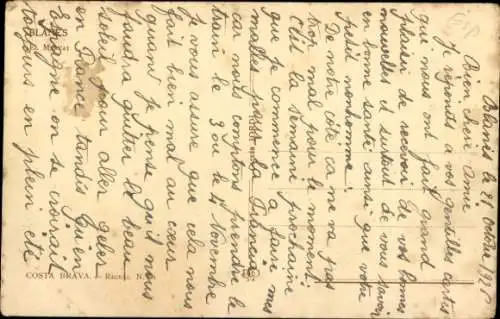 Blanes le 28 octobre 192
Bien chère amie
Je réponds à vos gentilles cartes
qui nous ont fait grand
plaisir de recevoir de vos bonnes
nouvelles et surtout de vous savoir
en bonne santé ainsi que votre
petit bonhomme.
De notre côté ça ne va pas
trop mal pour le moment
c'est la semaine prochaine
que je commence à faire mes
malles pour la France
car nous comptons prendre le
train le 3 ou le 4 Novembre
Je vous assure que cela nous
fait bien mal au cœur
quand je pense qu'il nous
faudra quitter le beau
soleil pour aller geler
en France tandis qu'en
Espagne on se croirait
toujours en plein été
BLANES
COSTA BRAVA. — Recuil N.